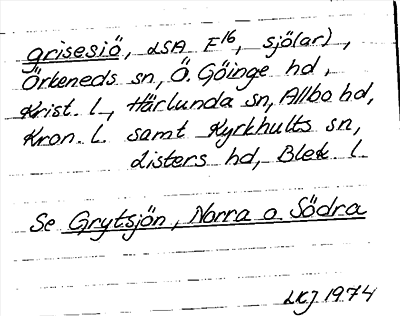 grisesiö, LSA E16, sjö(ar),
Örkeneds sn, Ö. Göinge hd,
Krist. l., Härlunda sn, Allbo hd,
Kron. l. samt Kyrkhults sn,
Listers hd, Blek l.
Se Grytsjön, Norra o. Södra
LKJ 1974